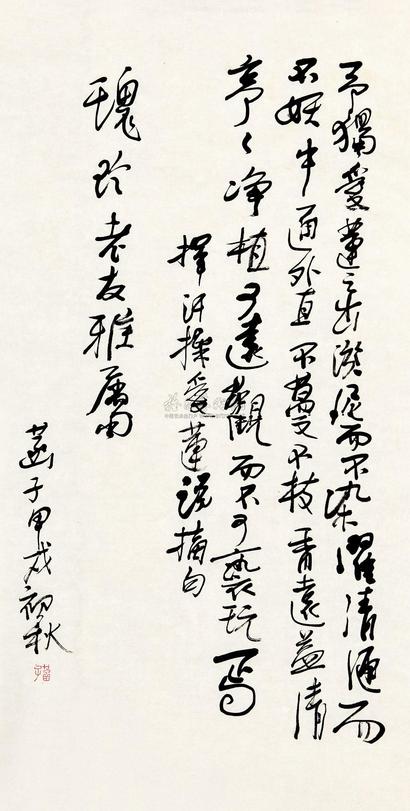 予獨愛蓮之出淤泥而不染濯清漣而
不妖中通外直不蔓不枝香遠益清
亭々净植可遠觀而不可褻玩焉
愛蓮說摘句
瑰玲老友雅屬
苗子甲戌初秋